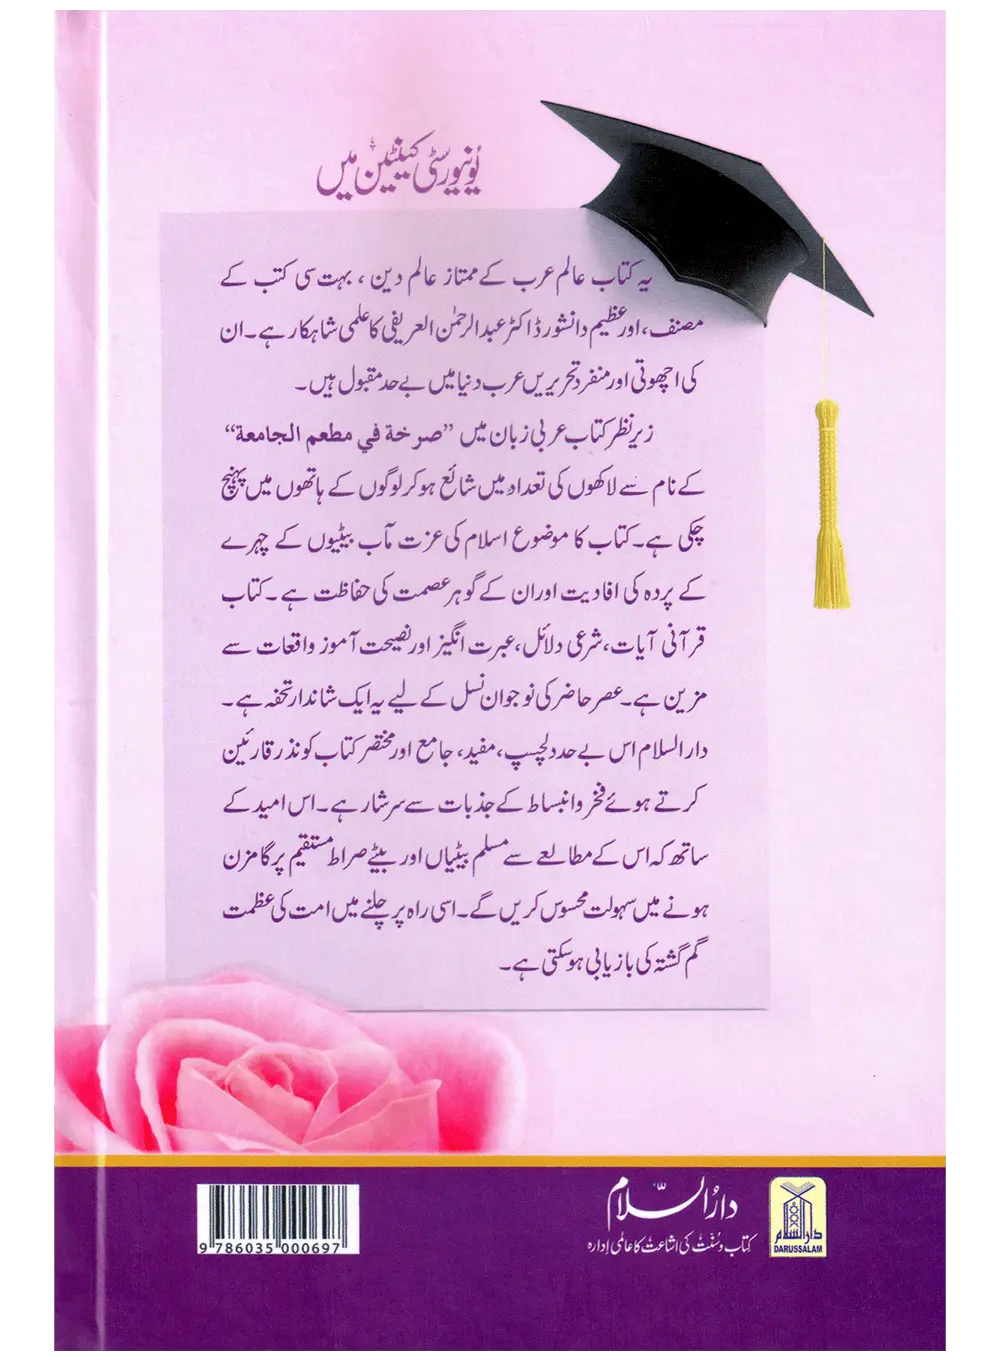 یُونیورسٹی کینٹین میں
یہ کتاب عالم عرب کے ممتاز عالم دین، بہت سی کتب کے
مصنف، اور عظیم دانشور ڈاکٹر عبدالرحمٰن العریفی کا علمی شاہکار ہے۔ ان
کی اچھوتی اور منفرد تحریریں عرب دنیا میں بے حد مقبول ہیں۔
زیر نظر کتاب عربی زبان میں ”صرخة في مطعم الجامعة“
کے نام سے لاکھوں کی تعداد میں شائع ہو کر لوگوں کے ہاتھوں میں پہنچ
چکی ہے۔ کتاب کا موضوع اسلام کی عزت مآب بیٹیوں کے چہرے
کے پردہ کی افادیت اور ان کے گوہر عصمت کی حفاظت ہے۔ کتاب
قرآنی آیات، شرعی دلائل، عبرت انگیز اور نصیحت آموز واقعات سے
مزین ہے۔ عصر حاضر کی نوجوان نسل کے لیے یہ ایک شاندار تحفہ ہے۔
دارالسلام اس بے حد دلچسپ، مفید، جامع اور مختصر کتاب کو نذر قارئین
کرتے ہوئے فخر و انبساط کے جذبات سے سرشار ہے۔ اس امید کے
ساتھ کہ اس کے مطالعے سے مسلم بیٹیاں اور بیٹے صراط مستقیم پر گامزن
ہونے میں سہولت محسوس کریں گے۔ اسی راہ پر چلنے میں امت کی عظمت
گم گشتہ کی بازیابی ہو سکتی ہے۔
دارُالسّلام
کتاب و سُنّت کی اشاعت کا عالمی ادارہ
دارالسلام
DARUSSALAM
9 786035 000697